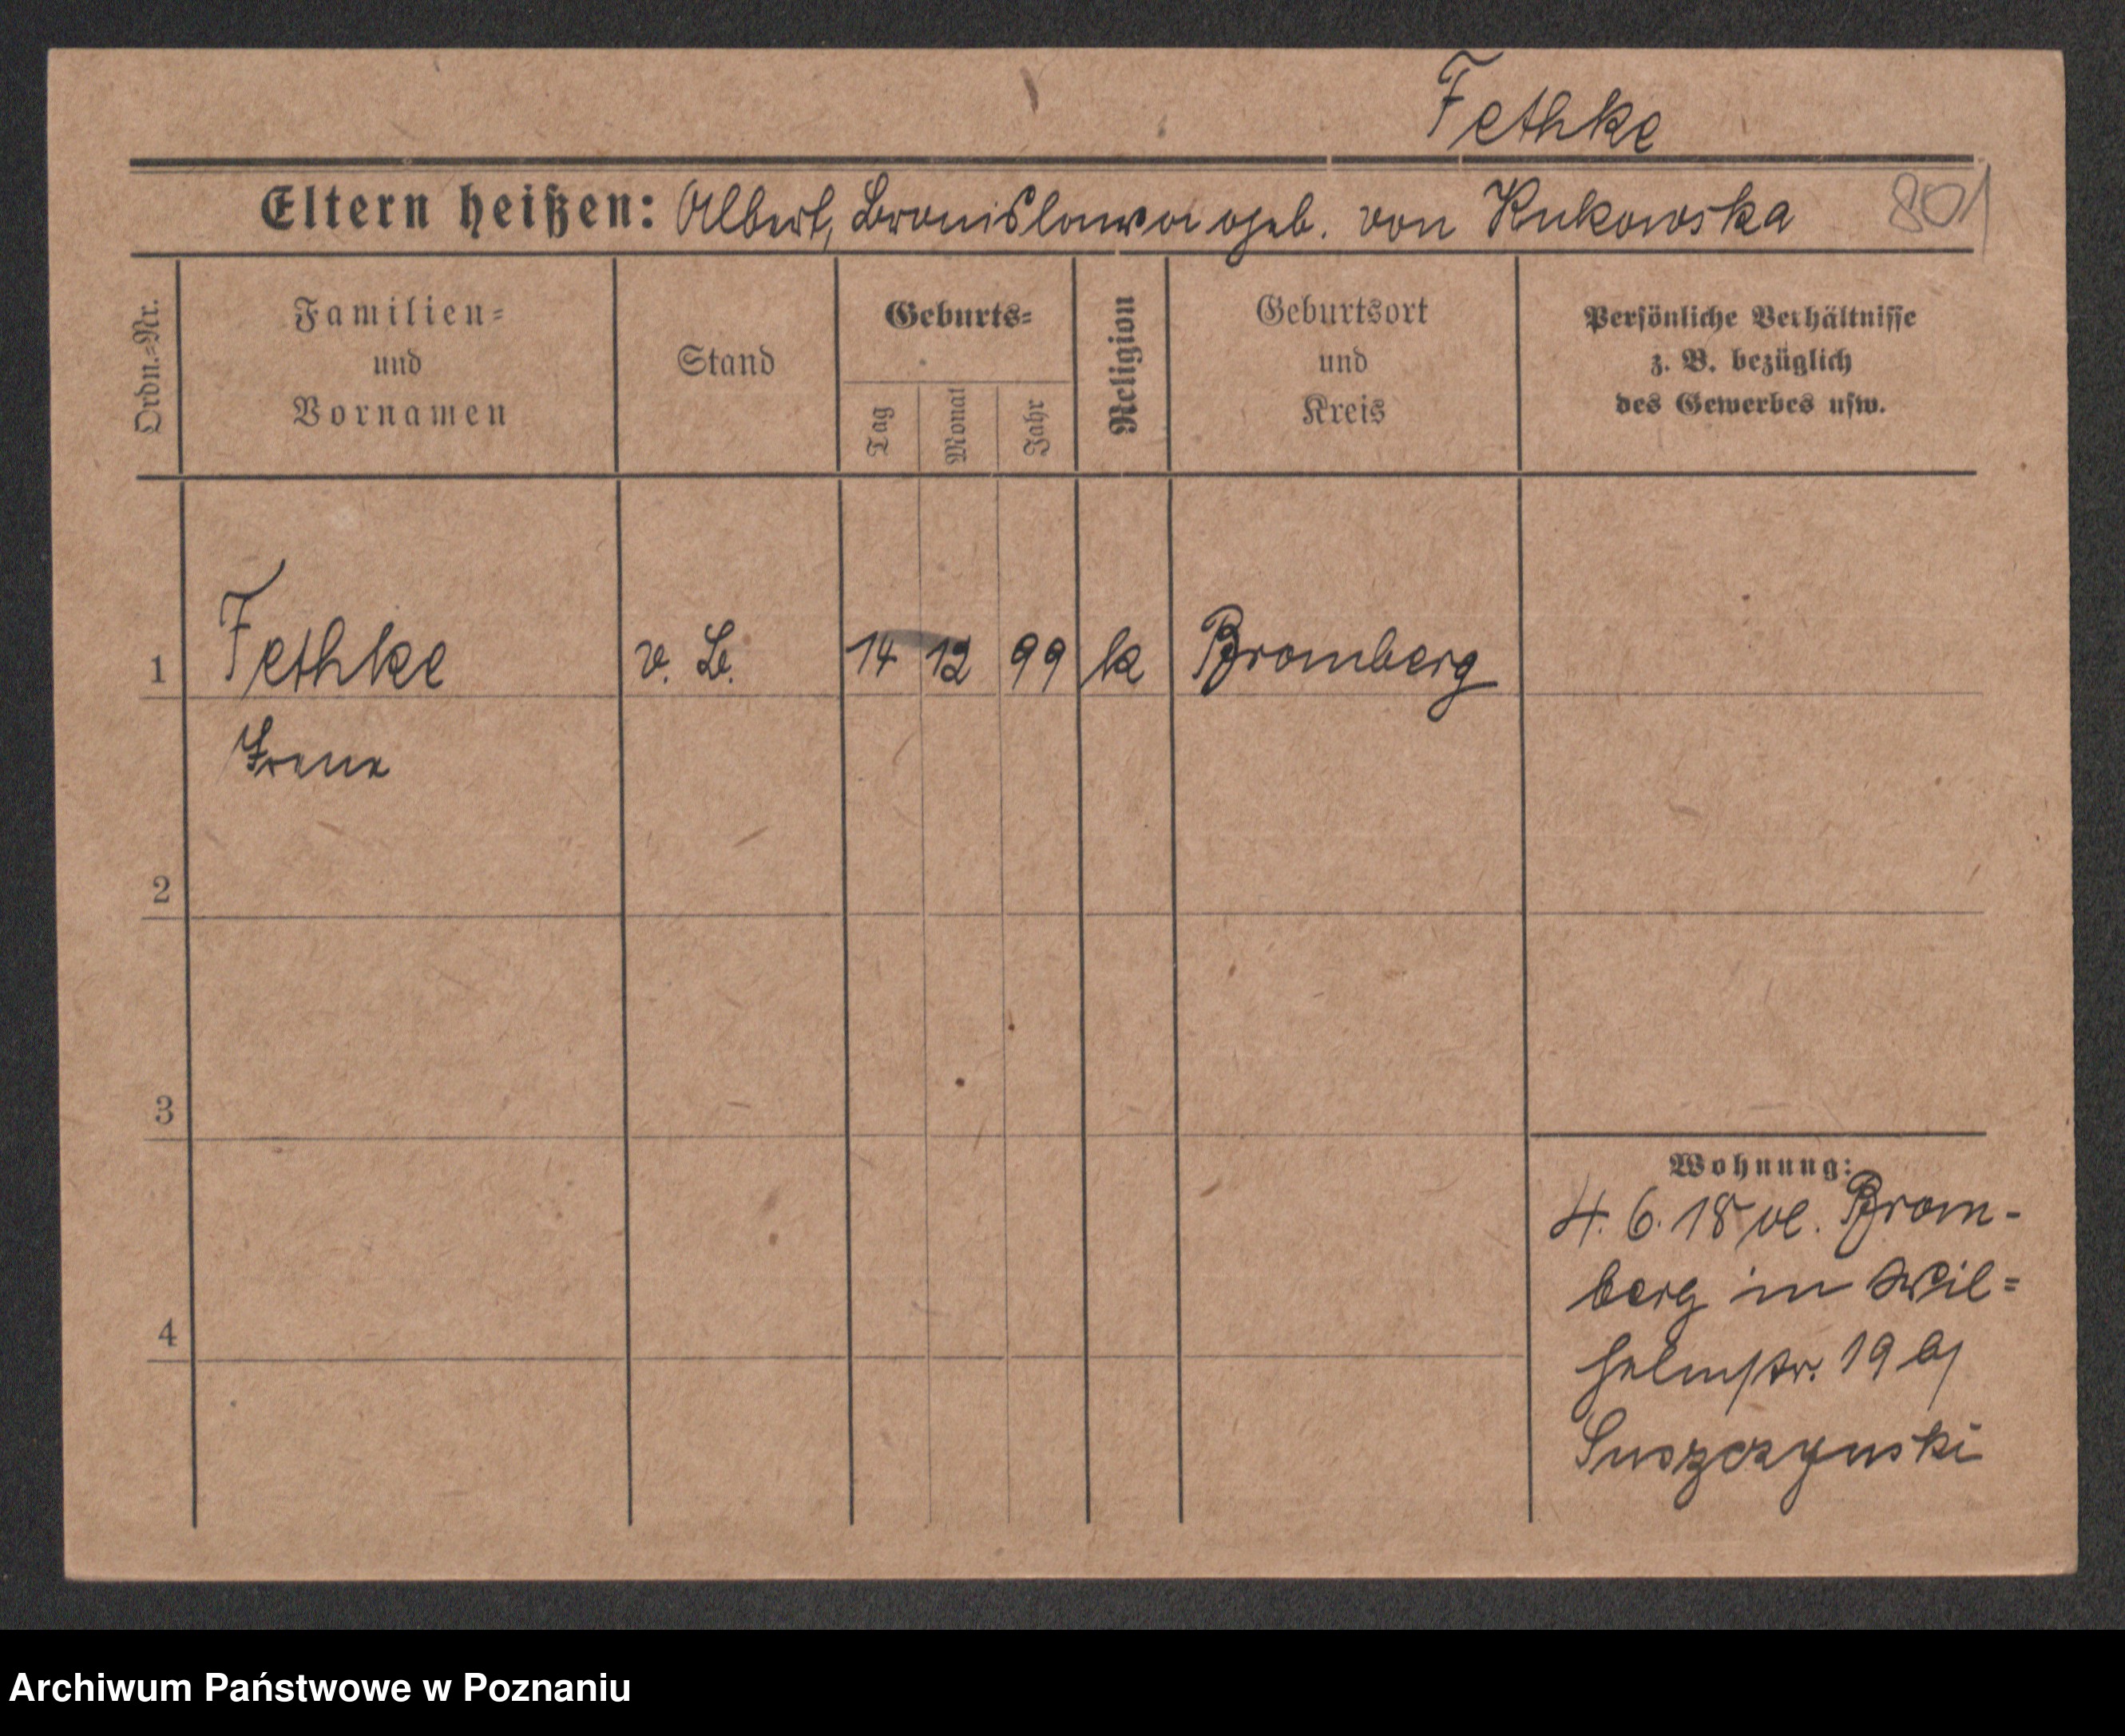 Fethke
Eltern heißen: Albert, Bronislawa geb. von Kukowska 801
Ordn.=Nr.
Familien=
und
Vornamen
Stand
Geburts=
Tag
Monat
Jahr
Religion
Geburtsort
und
Kreis
Persönliche Verhältnisse
z. B. bezüglich
des Gewerbes usw.
1 Fethke v. B. 14 12 99 k Bromberg
Irene
2
3
4
Wohnung:
4. 6. 18 Brom-
berg in Wil=
helmstr. 19 b/
Suszczynski
Archiwum Państwowe w Poznaniu